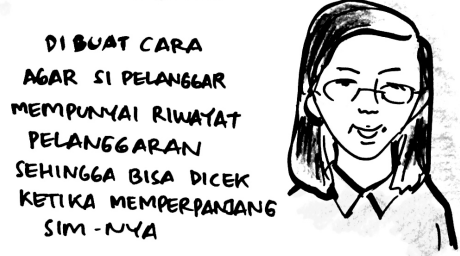 DIBUAT CARA
AGAR SI PELANGGAR
MEMPUNYAI RIWAYAT
PELANGGARAN
SEHINGGA BISA DICEK
KETIKA MEMPERPANJANG
SIM-NYA